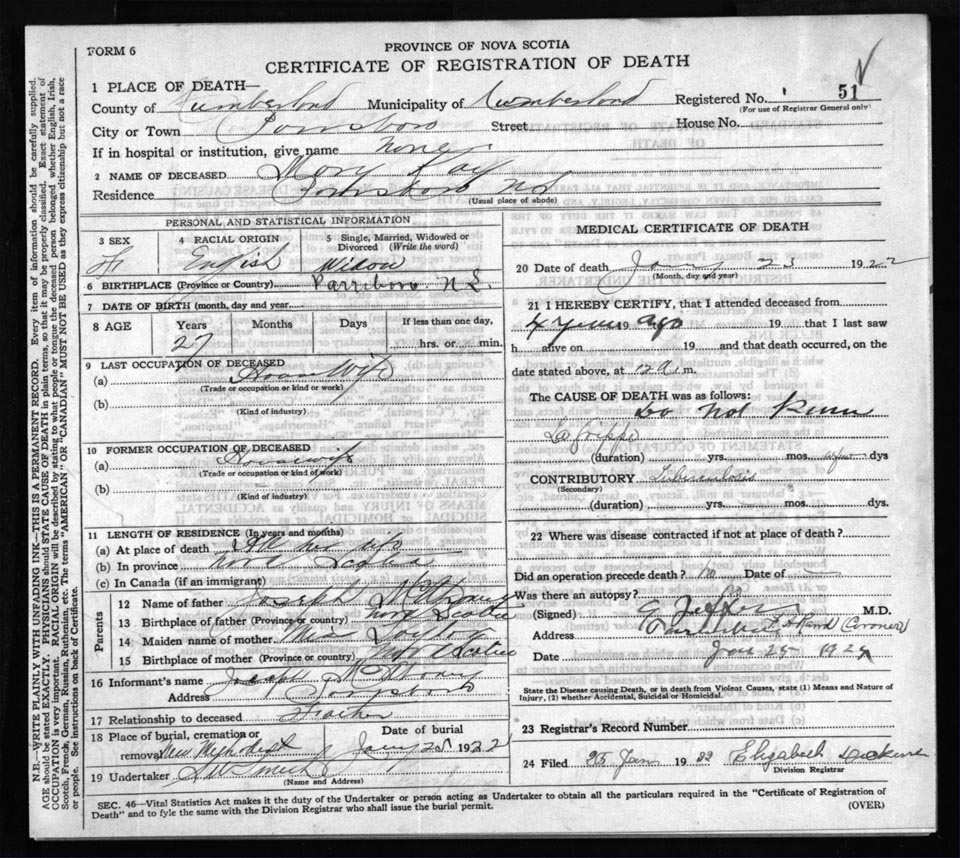 FORM 6
PROVINCE OF NOVA SCOTIA
CERTIFICATE OF REGISTRATION OF DEATH
1 PLACE OF DEATH—
County of Cumberland Municipality of Cumberland Registered No. 51
(For use of Registrar General only)
City or Town Parrsboro Street House No.
If in hospital or institution, give name None
2 NAME OF DECEASED Mary Kay
Residence Parrsboro N S
(Usual place of abode)
PERSONAL AND STATISTICAL INFORMATION
3 SEX F
4 RACIAL ORIGIN English
5 Single, Married, Widowed or Divorced (Write the word) Widow
6 BIRTHPLACE (Province or Country) Parrsboro N.S.
7 DATE OF BIRTH (month, day and year)
8 AGE Years Months Days If less than one day,
27 hrs. or min.
9 LAST OCCUPATION OF DECEASED
(a) House Wife
(Trade or occupation or kind or work)
(b)
(Kind of industry)
10 FORMER OCCUPATION OF DECEASED
(a) Housewife
(Trade or occupation or kind of work)
(b)
(Kind of industry)
11 LENGTH OF RESIDENCE (In years and months)
(a) At place of death All her life
(b) In province Nova Scotia
(c) In Canada (if an immigrant)
Parents
12 Name of father Joseph
13 Birthplace of father (Province or country) Nova Scotia
14 Maiden name of mother
15 Birthplace of mother (Province or country) Nova Scotia
16 Informant's name Joseph
Address Parrsboro
17 Relationship to deceased Father
18 Place of burial, cremation or removal New Methodist
Date of burial Jany 25 1922
19 Undertaker
(Name and Address)
MEDICAL CERTIFICATE OF DEATH
20 Date of death Jany 23 1922
(Month, day and year)
21 I HEREBY CERTIFY, that I attended deceased from
4 years 19 ago 19 that I last saw
h alive on 19 and that death occurred, on the
date stated above, at 12 a.m.
The CAUSE OF DEATH was as follows:
Do Not Know
La Grippe
(duration) yrs. mos. few dys
CONTRIBUTORY Tuberculosis
(Secondary)
(duration) yrs. mos. dys.
22 Where was disease contracted if not at place of death?
Did an operation precede death? No Date of —
Was there an autopsy?
(Signed) M.D.
Address (Coroner)
Date Jan 25 192
State the Disease causing Death, or in death from Violent Causes, state (1) Means and Nature of
Injury, (2) whether Accidental, Suicidal or Homicidal.
23 Registrar's Record Number
24 Filed 25 Jan 1922 Elizabeth
Division Registrar
SEC. 46—Vital Statistics Act makes it the duty of the Undertaker or person acting as Undertaker to obtain all the particulars required in the "Certificate of Registration of
Death" and to fyle the same with the Division Registrar who shall issue the burial permit. (OVER)
N.B.—WRITE PLAINLY WITH UNFADING INK—THIS IS A PERMANENT RECORD. Every item of information should be carefully supplied.
AGE should be stated EXACTLY. PHYSICIANS should STATE CAUSE OF DEATH in plain terms, so that it may be properly classified. Exact statement of
OCCUPATION is very important. RACIAL ORIGIN will be described by stating to what people or tongue the deceased person belonged whether English, Irish,
Scotch, French, German, Russian, Ruthenian, etc. The terms "AMERICAN" OR "CANADIAN" MUST NOT BE USED as they express citizenship but not a race
or people. See instructions on back of Certificate.